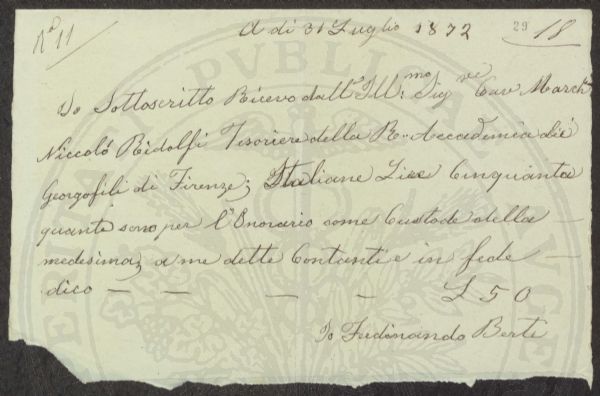 N° 11
A di 31 Luglio 1872
29 18
Io Sottoscritto Ricevo dall' Ill:mo Sig re Cav March
Niccoló Ridolfi Tesoriere della R. Accademia dei
Georgofili di Firenze; Italiane Lire Cinquanta
quante sono per l'Onorario come Custode della
medesima; a me dette Contanti e in fede
dico — — — — £ 50
Io Ferdinando Berti
PVBLICAE